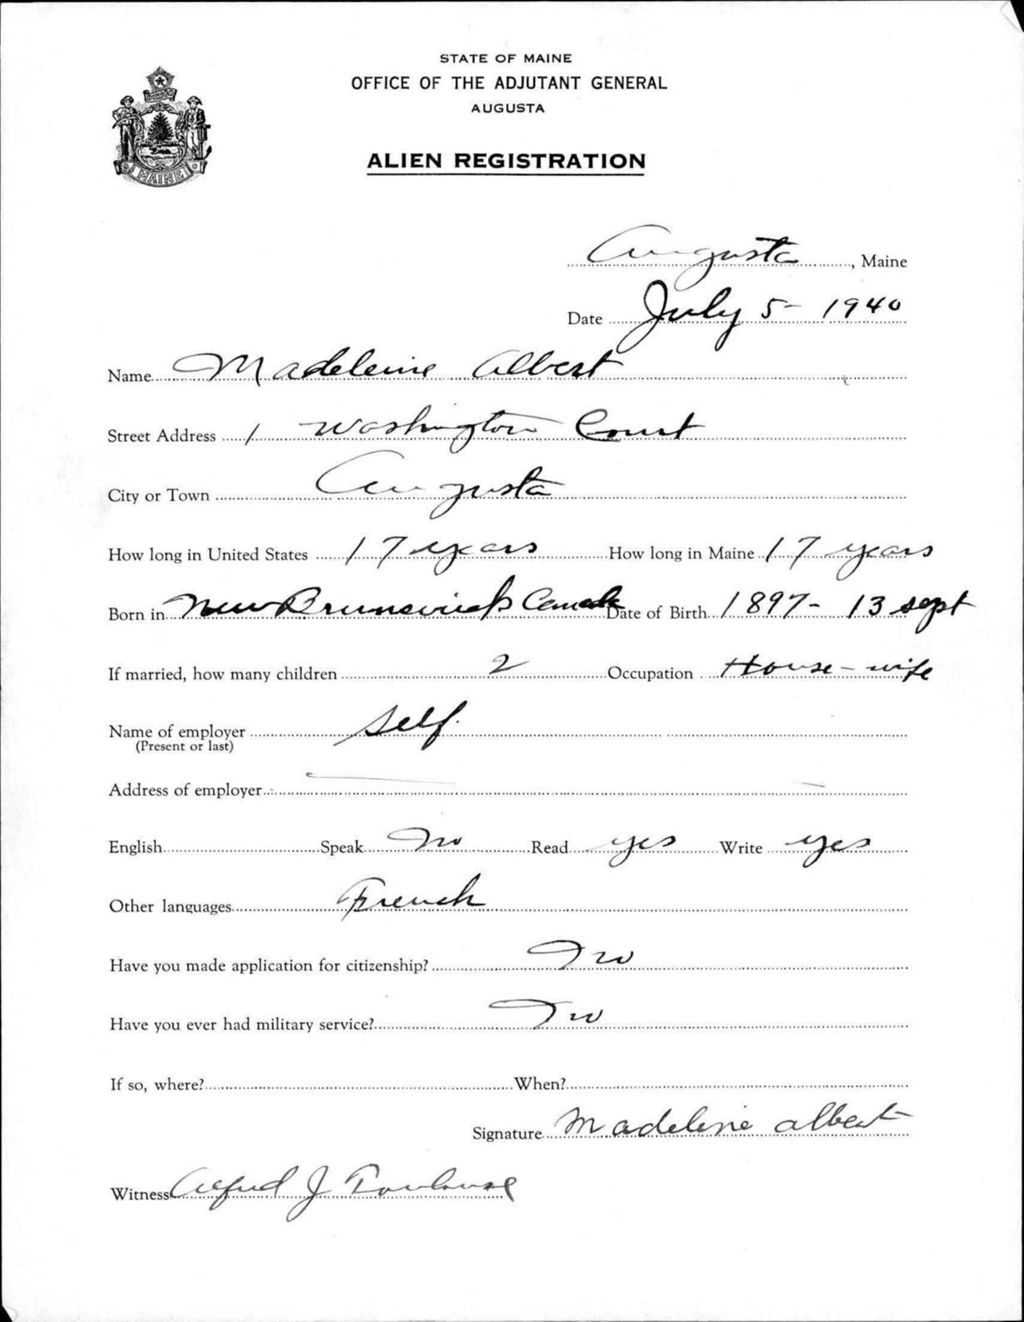 STATE OF MAINE
OFFICE OF THE ADJUTANT GENERAL
AUGUSTA
ALIEN REGISTRATION
MAINE
Augusta, Maine
Date July 5- 1940
Name Madeleine Albert
Street Address 1 Washington Court
City or Town Augusta
How long in United States 17 years How long in Maine 17 years
Born in New Brunswick Canada Date of Birth 1897- 13 sept
If married, how many children 2 Occupation House-wife
Name of employer Self.
(Present or last)
Address of employer
English Speak No Read yes Write yes
Other languages French
Have you made application for citizenship? No
Have you ever had military service? No
If so, where? When?
Signature Madeleine albert
Witness Alfred J Toulouse